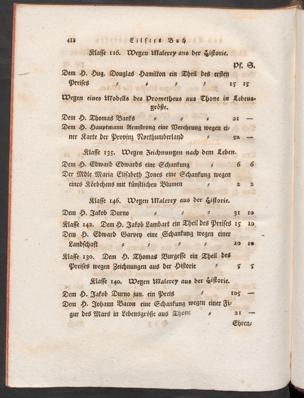 412 Eilftes Buch
Klasse 126. Wegen Malerey aus der Historie.
Pf. S.
Dem H. Hug. Douglas Hamilton ein Theil des ersten
Preises 15 15
Wegen eines Modells des Prometheus aus Thone in Lebens-
größe.
Dem H. Thomas Banks 21 —
Dem H. Hauptmann Armstrong eine Verehrung wegen ei-
ner Karte der Provinz Northumberland 52 —
Klasse 135. Wegen Zeichnungen nach dem Leben.
Dem H. Edward Edwards eine Schankung 6 6
Der Mdlle Maria Elisabeth Jones eine Schankung wegen
eines Körbchens mit künstlichen Blumen 2 2
Klasse 146. Wegen Malerey aus der Historie.
Dem H. Jakob Durno 31 10
Klasse 142. Dem H. Jakob Lambart ein Theil des Preises 15 10
Dem H. Edward Garvey eine Schankung wegen einer
Landschaft 10 10
Klasse 130. Dem H. Thomas Burgesse ein Theil des
Preises wegen Zeichnungen aus der Historie 5 5
Klasse 140. Wegen Malerey aus der Historie.
Dem H. Jakob Durno jun. ein Preis 105 —
Dem H. Johann Bacon eine Schankung wegen einer Fi-
gur des Mars in Lebensgröße aus Thone 21 —
Ehren-